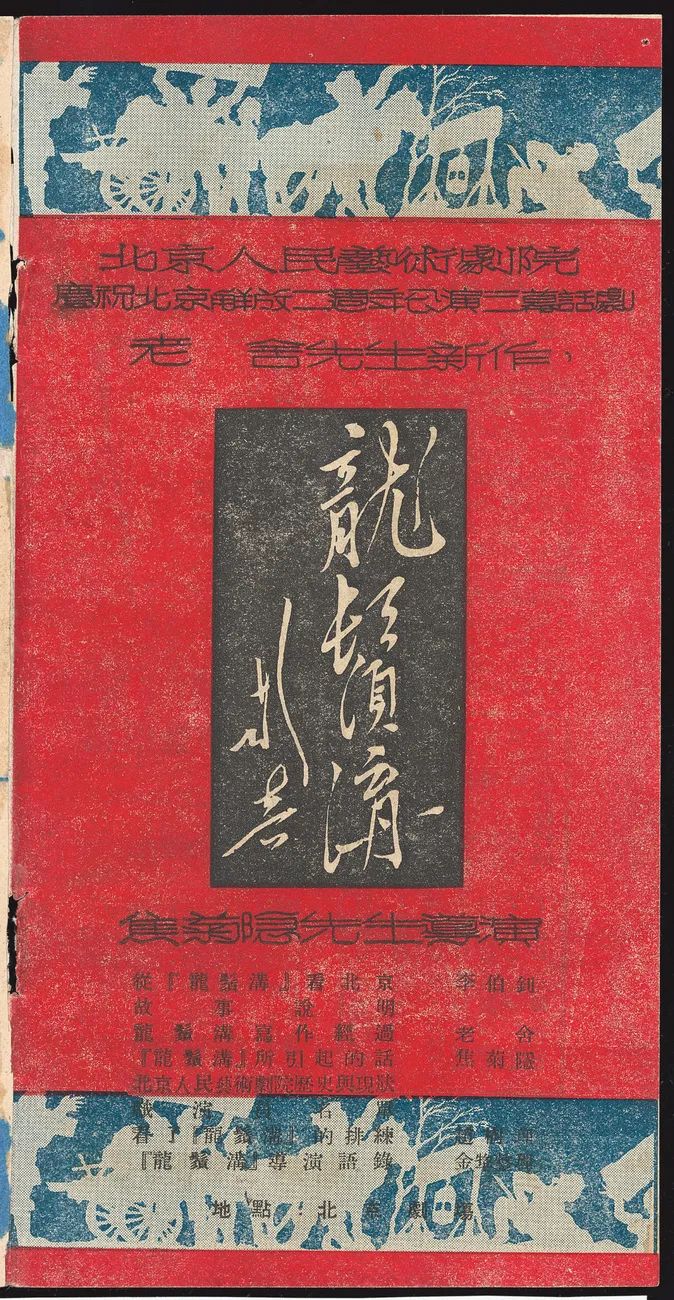 北京人民藝術劇院
慶祝北京解放二週年公演三幕話劇
老舍先生新作
龍鬚溝
焦菊隱先生導演
從『龍鬚溝』看北京 李伯釗
故事說明
龍鬚溝寫作經過 老舍
『龍鬚溝』所引起的話 焦菊隱
北京人民藝術劇院歷史與現狀
職演員名單
看了『龍鬚溝』的排練
『龍鬚溝』導演語錄 金
地點：北京劇場